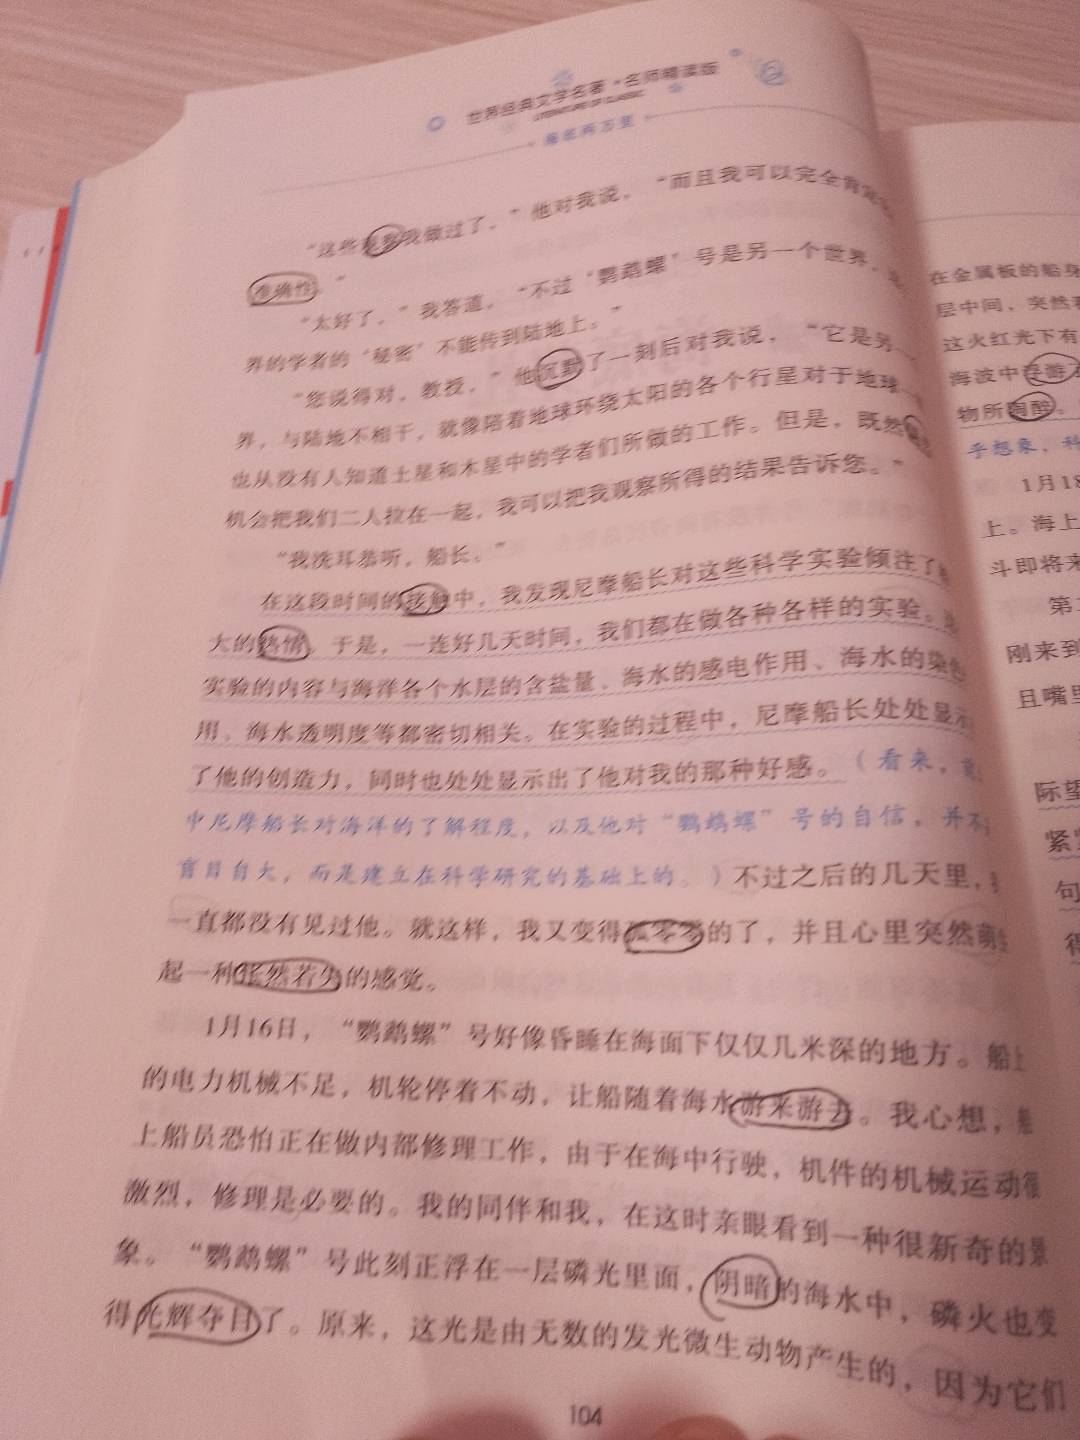 世界经典文学名著·名师精读版
LITERATURE OF CLASSIC
海底两万里
“这些观察我做过了，”他对我说，“而且我可以完全肯定
准确性。”
“太好了，”我答道，“不过‘鹦鹉螺’号是另一个世界，
界的学者的‘秘密’不能传到陆地上。”
“您说得对，教授，”他沉默了一刻后对我说，“它是另一
界，与陆地不相干，就像陪着地球环绕太阳的各个行星对于地球一
也从没有人知道土星和木星中的学者们所做的工作。但是，既然
机会把我们二人拉在一起，我可以把我观察所得的结果告诉您。”
“我洗耳恭听，船长。”
在这段时间的接触中，我发现尼摩船长对这些科学实验倾注了
大的热情。于是，一连好几天时间，我们都在做各种各样的实验。
实验的内容与海洋各个水层的含盐量、海水的感电作用、海水的染色
用、海水透明度等都密切相关。在实验的过程中，尼摩船长处处显示
了他的创造力，同时也处处显示出了他对我的那种好感。（看来，
中尼摩船长对海洋的了解程度，以及他对“鹦鹉螺”号的自信，并不
盲目自大，而是建立在科学研究的基础上的。）不过之后的几天里，
一直都没有见过他。就这样，我又变得孤零零的了，并且心里突然萌生
起一种怅然若失的感觉。
1月16日，“鹦鹉螺”号好像昏睡在海面下仅仅几米深的地方。船上
的电力机械不足，机轮停着不动，让船随着海水游来游去。我心想，船
上船员恐怕正在做内部修理工作，由于在海中行驶，机件的机械运动很
激烈，修理是必要的。我的同伴和我，在这时亲眼看到一种很新奇的景
象。“鹦鹉螺”号此刻正浮在一层磷光里面，阴暗的海水中，磷火也变
得光辉夺目了。原来，这光是由无数的发光微生动物产生的，因为它们
104
在金属板的船身
层中间，突然
这火红光下有
海波中浮游
物所陶醉。
乎想象，科
1月18
上。海上
斗即将来
第
刚来到
且嘴里
际望
紧
句
得